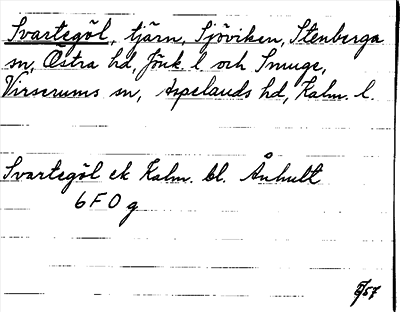 Svartegöl, tjärn, Sjöviken, Stenberga
sn, Östra hd, Jönk. l. och Smuge,
Virserums sn, Aspelands hd, Kalm. l.
Svartegöl ek Kalm. bl. Ånhult
6 F 0 g